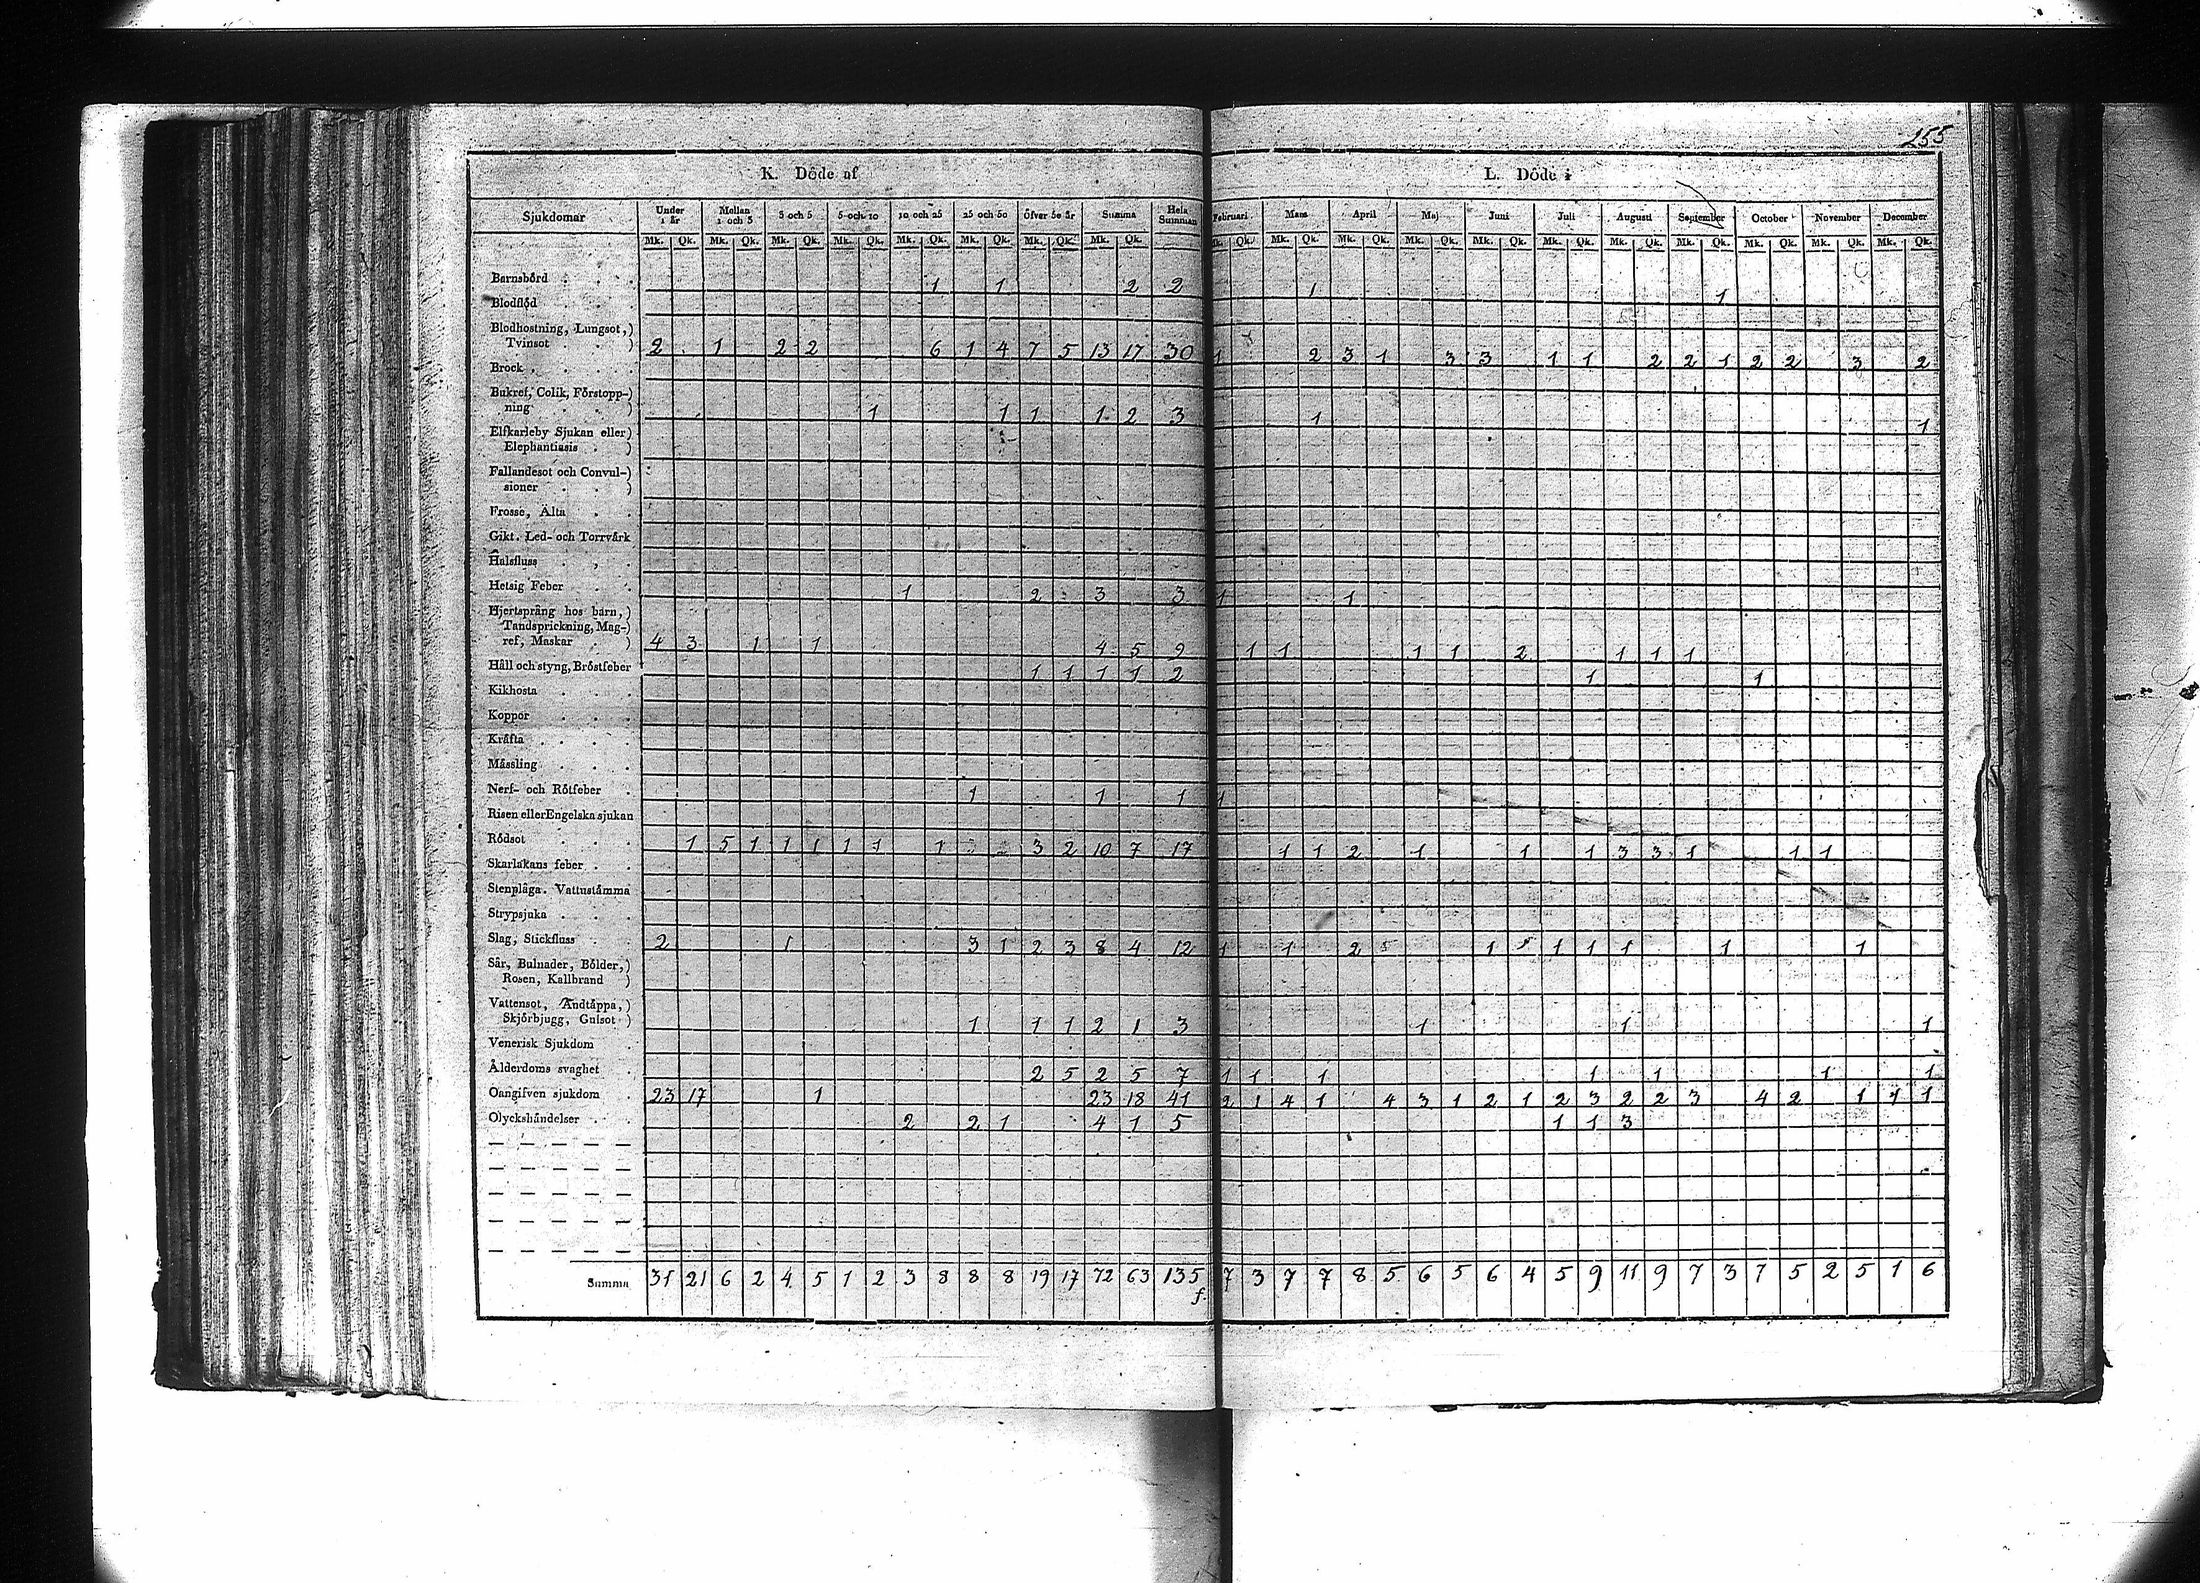 155
K. Döde af
L. Döde i
Sjukdomar Under 1 år Mellan 1 och 3 3 och 5 5 och 10 10 och 25 25 och 50 öfver 50 år Summa Hela Summan Februari Mars April Maj Juni Juli Augusti September October November December
Mk. Qk. Mk. Qk. Mk. Qk. Mk. Qk. Mk. Qk. Mk. Qk. Mk. Qk. Mk. Qk. Mk. Qk. Mk. Qk. Mk. Qk. Mk. Qk. Mk. Qk. Mk. Qk. Mk. Qk. Mk. Qk. Mk. Qk. Mk. Qk. Mk. Qk.
Barnsbörd 1 1 2 2 1 1
Blodflöd
Blodhostning, Lungsot,)
Tvinsot ) 2 1 2 2 6 1 4 7 5 13 17 30 1 2 3 1 3 3 1 1 2 2 1 2 2 3 2
Brock
Bukref, Colik, Förstopp-)
ning ) 1 1 1 1 2 3 1 1
Elfkarleby Sjukan eller)
Elephantiasis )
Fallandesot och Convul-)
sioner )
Frosse, Älta
Gikt. Led- och Torrvärk
Halsfluss
Hetsig Feber 1 2 3 3 1 1
Hjertsprång hos barn,)
Tandsprickning, Mag-)
ref, Maskar ) 4 3 1 1 4 5 9 1 1 1 1 2 1 1 1
Håll och styng, Bröstfeber 1 1 1 1 2 1 1
Kikhosta
Koppor
Kräfta
Mässling
Nerf- och Rötfeber 1 1 1 1
Risen eller Engelska sjukan
Rödsot 1 5 1 1 1 1 1 1 3 2 10 7 17 1 1 2 1 1 1 3 3 1 1 1
Skarlakans feber
Stenplåga. Vattustämma
Strypsjuka
Slag, Stickfluss 2 1 3 1 2 3 8 4 12 1 1 2 1 1 1 1 1 1
Sår, Bulnader, Bölder,)
Rosen, Kallbrand )
Vattensot, Andtäppa,)
Skjörbjugg, Gulsot ) 1 1 1 2 1 3 1 1 1
Venerisk Sjukdom
Ålderdoms svaghet 2 5 2 5 7 1 1 1 1 1 1 1
Oangifven sjukdom 23 17 1 23 18 41 2 1 4 1 4 3 1 2 1 2 3 2 2 3 4 2 1 1 1
Olyckshändelser 2 2 1 4 1 5 1 1 3
Summa 31 21 6 2 4 5 1 2 3 8 8 8 19 17 72 63 135 7 3 7 7 8 5 6 5 6 4 5 9 11 9 7 3 7 5 2 5 1 6
f.